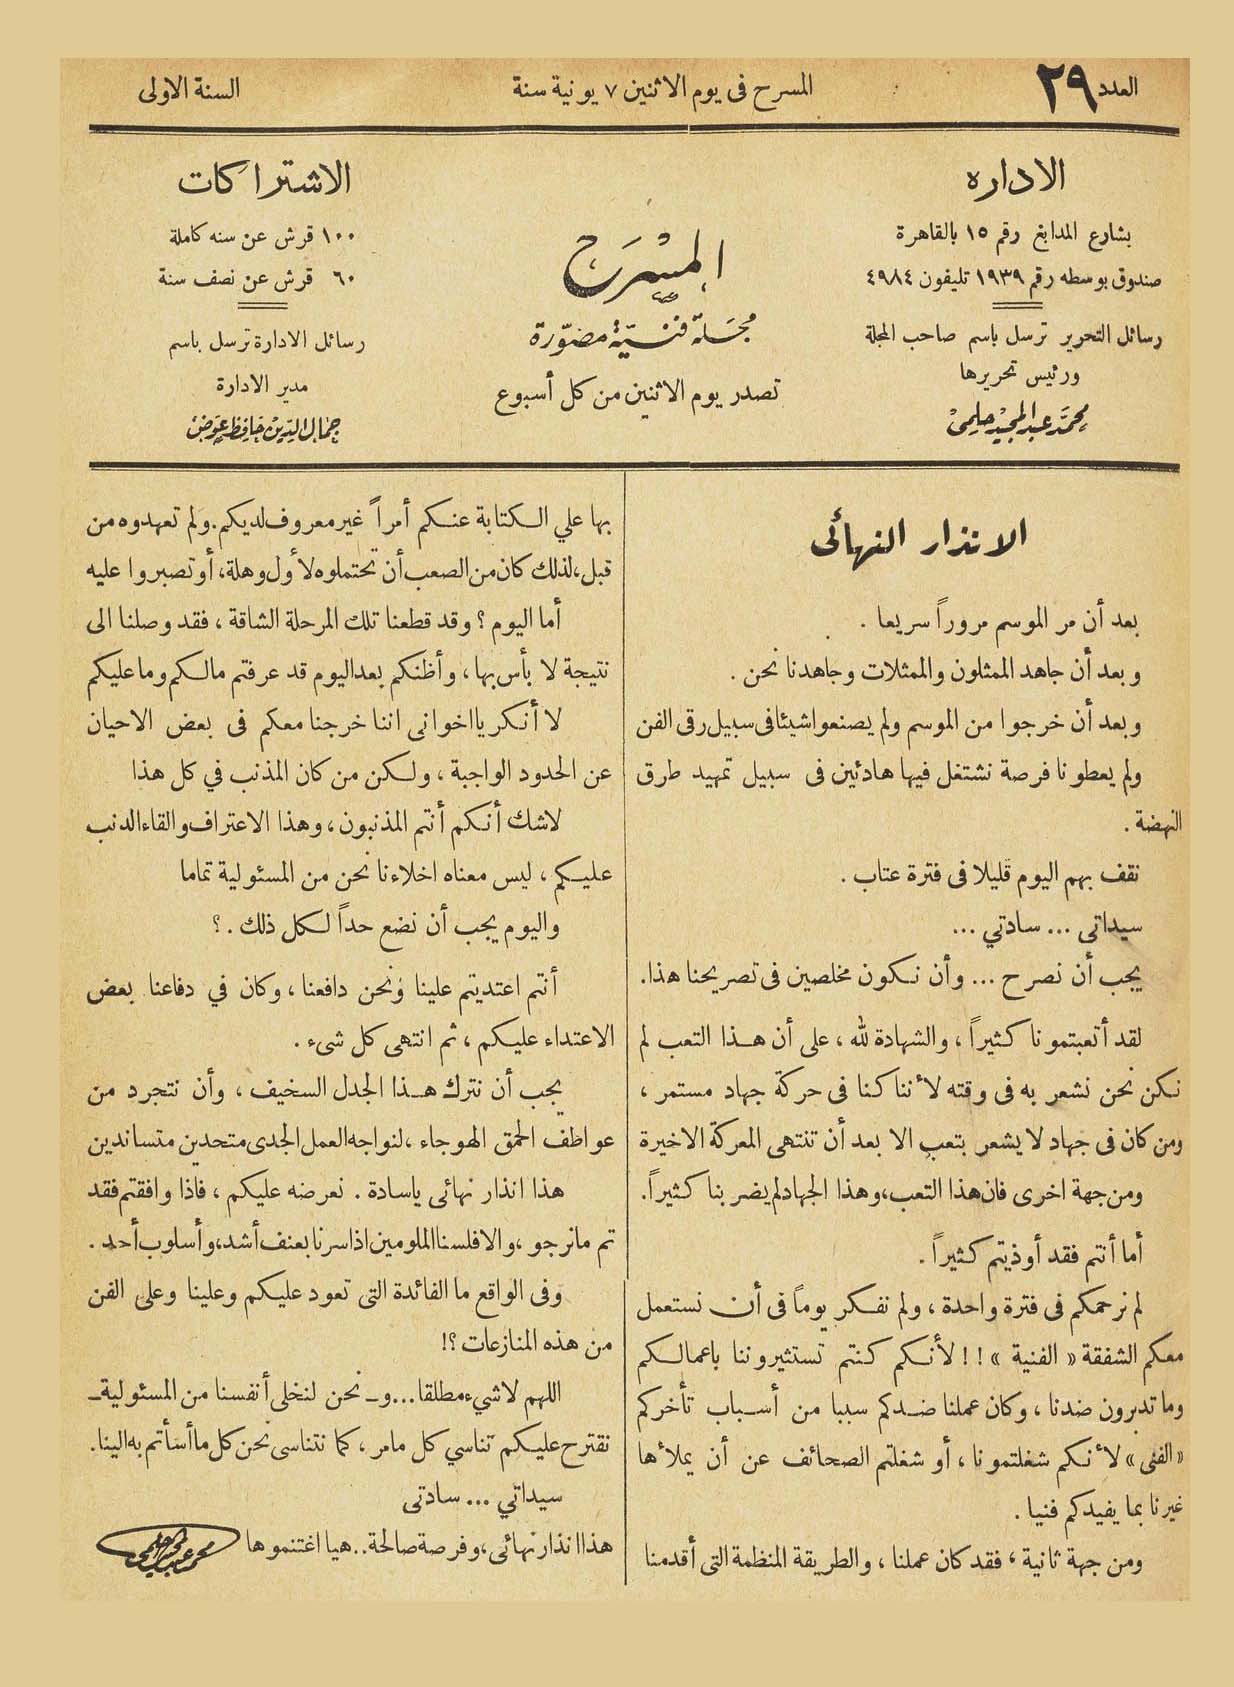 العدد ٢٩
المسرح في يوم الاثنين ٧ يونية سنة
السنة الاولى
الاداره
بشارع المدابغ رقم ١٥ بالقاهرة
صندوق بوسطه رقم ١٩٣٩ تليفون ٤٩٨٤
رسائل التحرير ترسل باسم صاحب المجلة
ورئيس تحريرها
محمد عبد المجيد حلمى
المسرح
مجلة فنية مصورة
تصدر يوم الاثنين من كل أسبوع
الاشتراكات
١٠٠ قرش عن سنه كاملة
٦٠ قرش عن نصف سنة
رسائل الادارة ترسل باسم
مدير الادارة
جمال الدين حافظ عوض
الانذار النهائى
بعد أن مر الموسم مروراً سريعا .
وبعد أن جاهد الممثلون والممثلات وجاهدنا نحن .
وبعد أن خرجوا من الموسم ولم يصنعوا شيئا فى سبيل رقى الفن
ولم يعطونا فرصة نشتغل فيها هادئين فى سبيل تمهيد طرق
النهضة .
نقف بهم اليوم قليلا فى فترة عتاب .
سيداتى ... سادتي ...
يجب أن نصرح ... وأن نكون مخلصين فى تصريحنا هذا.
لقد أتعبتمونا كثيراً ، والشهادة لله ، على أن هذا التعب لم
نكن نحن نشعر به فى وقته لأننا كنا فى حركة جهاد مستمر ،
ومن كان فى جهاد لا يشعر بتعب الا بعد أن تنتهى المعركة الاخيرة
ومن جهة اخرى فان هذا التعب، وهذا الجهاد لم يضر بنا كثيراً.
أما أنتم فقد أوذيتم كثيراً .
لم نرحمكم فى فترة واحدة ، ولم نفكر يوماً فى أن نستعمل
معكم الشفقة « الفنية » ! ! لأنكم كنتم تستثيروننا باعمالكم
وما تدبرون ضدنا ، وكان عملنا ضدكم سببا من أسباب تأخركم
« الفنى » لأنكم شغلتمونا ، أو شغلتم الصحائف عن أن يملأها
غيرنا بما يفيدكم فنيا .
ومن جهة ثانية ، فقد كان عملنا ، والطريقة المنظمة التى أقدمنا
بها علي الكتابة عنكم أمراً غير معروف لديكم. ولم تعهدوه من
قبل، لذلك كان من الصعب أن تحتملوه لأول وهلة، أو تصبروا عليه
أما اليوم ؟ وقد قطعنا تلك المرحلة الشاقة ، فقد وصلنا الى
نتيجة لا بأس بها ، وأظنكم بعد اليوم قد عرفتم مالكم وما عليكم
لا أنكر يا اخوانى اننا خرجنا معكم فى بعض الاحيان
عن الحدود الواجبة ، ولكن من كان المذنب في كل هذا
لاشك أنكم أنتم المذنبون ، وهذا الاعتراف والقاء الذنب
عليكم ، ليس معناه اخلاءنا نحن من المسئولية تماما
واليوم يجب أن نضع حداً لكل ذلك . ؟
أنتم اعتديتم علينا ونحن دافعنا ، وكان في دفاعنا بعض
الاعتداء عليكم ، ثم انتهى كل شىء .
يجب أن نترك هذا الجدل السخيف ، وأن نتجرد من
عواطف الحمق الهوجاء ، لنواجه العمل الجدى متحدين متساندين
هذا انذار نهائى ياسادة . نعرضه عليكم ، فاذا وافقتم فقد
تم مانرجو ، والا فلسنا الملومين اذا سرنا بعنف أشد، وأسلوب أحد .
وفى الواقع ما الفائدة التى تعود عليكم وعلينا وعلى الفن
من هذه المنازعات ؟!
اللهم لا شيء مطلقا ... و ـ نحن لنخلى أنفسنا من المسئولية ـ
نقترح عليكم تناسي كل مامر ، كما نتناسى نحن كل ما أسأتم به الينا.
سيداتي ... سادتى
هذا انذار نهائى ، وفرصة صالحة .. هيا اغتنموها
محمد عبد المجيد حلمى